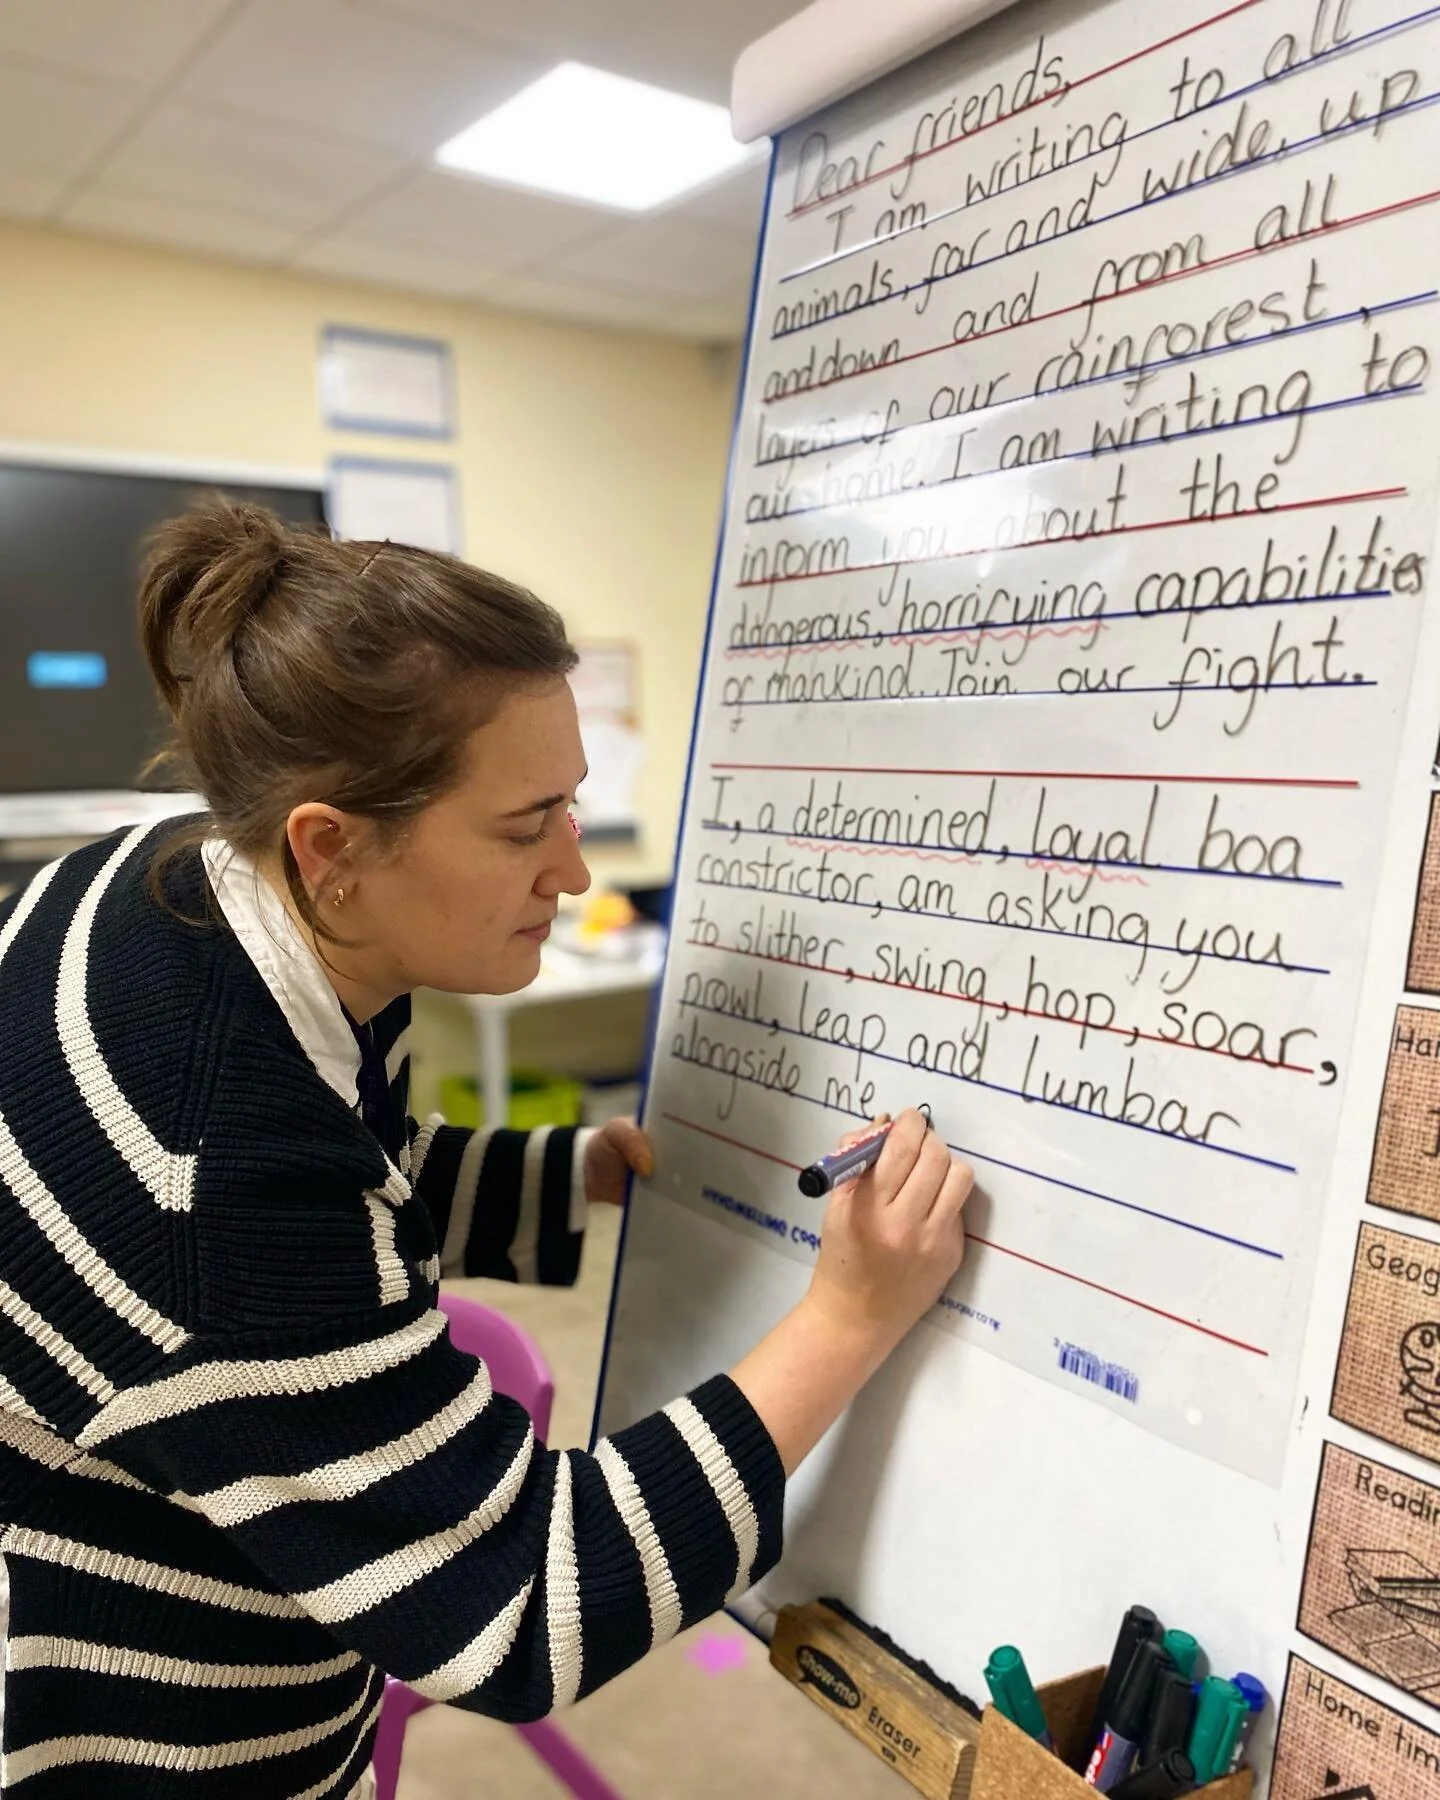 Dear friends,
I am writing to all
animals, far and wide, up
and down and from all
layers of our rainforest,
our home. I am writing to
inform you about the
dangerous, horrifying capabilities
of mankind. Join our fight.
I, a determined, loyal boa
constrictor, am asking you
to slither, swing, hop, soar,
prowl, leap and lumbar
alongside me
HANDWRITING
Geog
Readin
Home tim
Show-me
Eraser